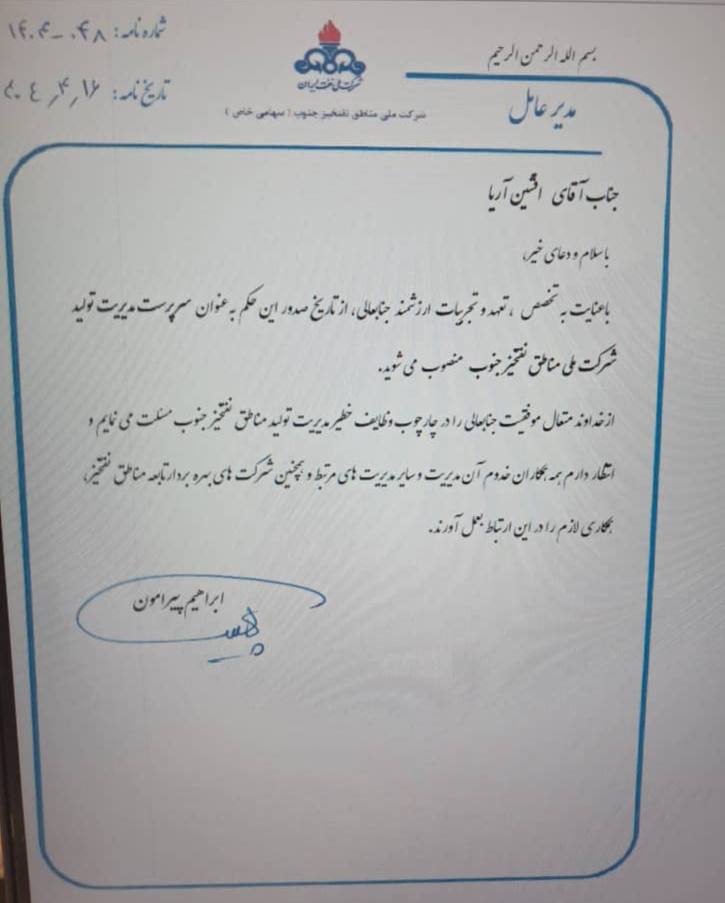 بسم الله الرحمن الرحیم
شماره نامه: ۱۴۰۴-۰۴۸
تاریخ نامه: ۴/۱۶
شرکت ملی نفت ایران
شرکت ملی مناطق نفتخیز جنوب (سهامی خاص)
مدیر عامل
جناب آقای افشین آریا
با سلام و دعای خیر،
با عنایت به تخصص، تعهد و تجربیات ارزشمند جنابعالی، از تاریخ صدور این حکم به عنوان سرپرست مدیریت تولید
شرکت ملی مناطق نفتخیز جنوب منصوب می شوید.
از خداوند متعال موفقیت جنابعالی را در چارچوب وظایف خطیر مدیریت تولید مناطق نفتخیز جنوب مسئلت می نمایم و
انتظار دارم همه همکاران خدوم آن مدیریت و سایر مدیریت های مرتبط و همچنین شرکت های بهره بردار تابعه مناطق نفتخیز،
همکاری لازم را در این ارتباط بعمل آورند.
ابراهیم پیرامون